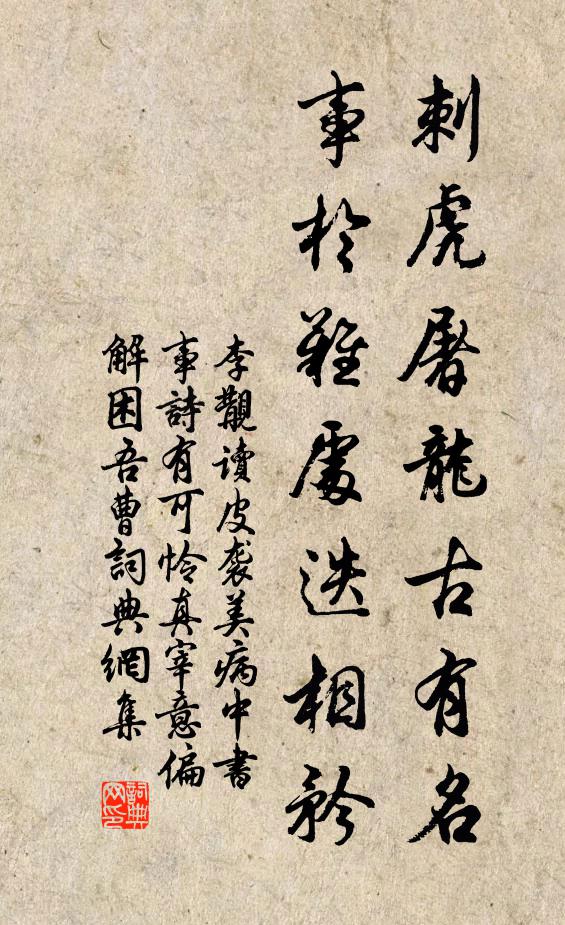 刺虎屠龍古有名
事於難處迭相矜
李觀讀皮襲美病中書
事詩有可怜真宰意偏
解困吾曹詞典網集
詞典网印